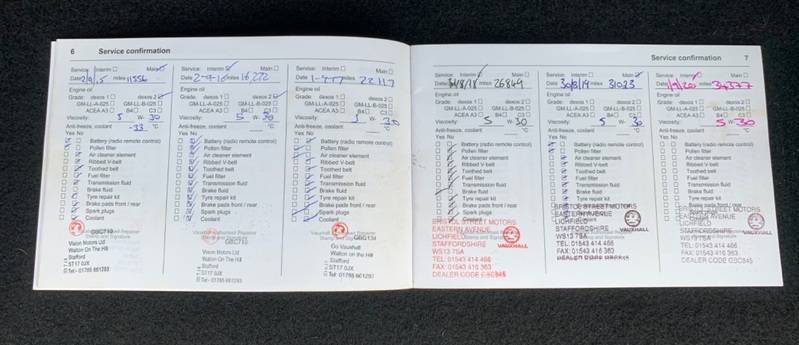 6 Service confirmation
Service: Interim Main
Date 2/9/15 miles 11556
Engine oil
Grade: dexos 1 dexos 2
GM-LL-A-025 GM-LL-B-025
ACEA A3 B4 C3
Viscosity: 5 W- 30
Anti-freeze, coolant -33 °C
Yes No
Battery (radio remote control)
Pollen filter
Air cleaner element
Ribbed V-belt
Toothed belt
Fuel filter
Transmission fluid
Brake fluid
Tyre repair kit
Brake pads front / rear
Spark plugs
Coolant
Vision Motors Ltd
Walton On The Hill
Stafford
ST17 0JX
Tel - 01785 661293
Service: Interim Main
Date 2-9-16 miles 16272
Engine oil
Grade: dexos 1 dexos 2
GM-LL-A-025 GM-LL-B-025
ACEA A3 B4 C3
Viscosity: 5 W- 30
Anti-freeze, coolant °C
Yes No
Battery (radio remote control)
Pollen filter
Air cleaner element
Ribbed V-belt
Toothed belt
Fuel filter
Transmission fluid
Brake fluid
Tyre repair kit
Brake pads front / rear
Spark plugs
Coolant
Vision Motors Ltd
Walton On The Hill
Stafford
ST17 0JX
Tel - 01785 661293
Service: Interim Main
Date miles
Engine oil
Grade: dexos 1 dexos 2
GM-LL-A-025 GM-LL-B-025
ACEA A3 B4 C3
Viscosity: 5 W- 30
Anti-freeze, coolant °C
Yes No
Battery (radio remote control)
Pollen filter
Air cleaner element
Ribbed V-belt
Toothed belt
Fuel filter
Transmission fluid
Brake fluid
Tyre repair kit
Brake pads front / rear
Spark plugs
Coolant
GBC134
Go Vauxhall
Walton on the Hill
Stafford
ST17 0JX
Tel - 01785 661293
Service confirmation 7
Service: Interim Main
Date 31/8/18 miles 26849
Engine oil
Grade: dexos 1 dexos 2
GM-LL-A-025 GM-LL-B-025
ACEA A3 B4 C3
Viscosity: 5 W- 30
Anti-freeze, coolant °C
Yes No
Battery (radio remote control)
Pollen filter
Air cleaner element
Ribbed V-belt
Toothed belt
Fuel filter
Transmission fluid
Brake fluid
Tyre repair kit
Brake pads front / rear
Spark plugs
Coolant
BRISTOL STREET MOTORS
EASTERN AVENUE
LICHFIELD
STAFFORDSHIRE
WS13 7SA
TEL: 01543 414 466
FAX: 01543 416 363
DEALER CODE GBC845
VAUXHALL
Service: Interim Main
Date 30/8/19 miles 31023
Engine oil
Grade: dexos 1 dexos 2
GM-LL-A-025 GM-LL-B-025
ACEA A3 B4 C3
Viscosity: 5 W- 30
Anti-freeze, coolant °C
Yes No
Battery (radio remote control)
Pollen filter
Air cleaner element
Ribbed V-belt
Toothed belt
Fuel filter
Transmission fluid
Brake fluid
Tyre repair kit
Brake pads front / rear
Spark plugs
Coolant
BRISTOL STREET MOTORS
EASTERN AVENUE
LICHFIELD
STAFFORDSHIRE
WS13 7SA
TEL: 01543 414 466
FAX: 01543 416 363
VAUXHALL
Service: Interim Main
Date 1/9/20 miles 34377
Engine oil
Grade: dexos 1 dexos 2
GM-LL-A-025 GM-LL-B-025
ACEA A3 B4 C3
Viscosity: 5 W- 30
Anti-freeze, coolant °C
Yes No
Battery (radio remote control)
Pollen filter
Air cleaner element
Ribbed V-belt
Toothed belt
Fuel filter
Transmission fluid
Brake fluid
Tyre repair kit
Brake pads front / rear
Spark plugs
Coolant
BRISTOL STREET MOTORS
EASTERN AVENUE
LICHFIELD
STAFFORDSHIRE
WS13 7SA
TEL: 01543 414 466
FAX: 01543 416 363
DEALER CODE GBC845
VAUXHALL